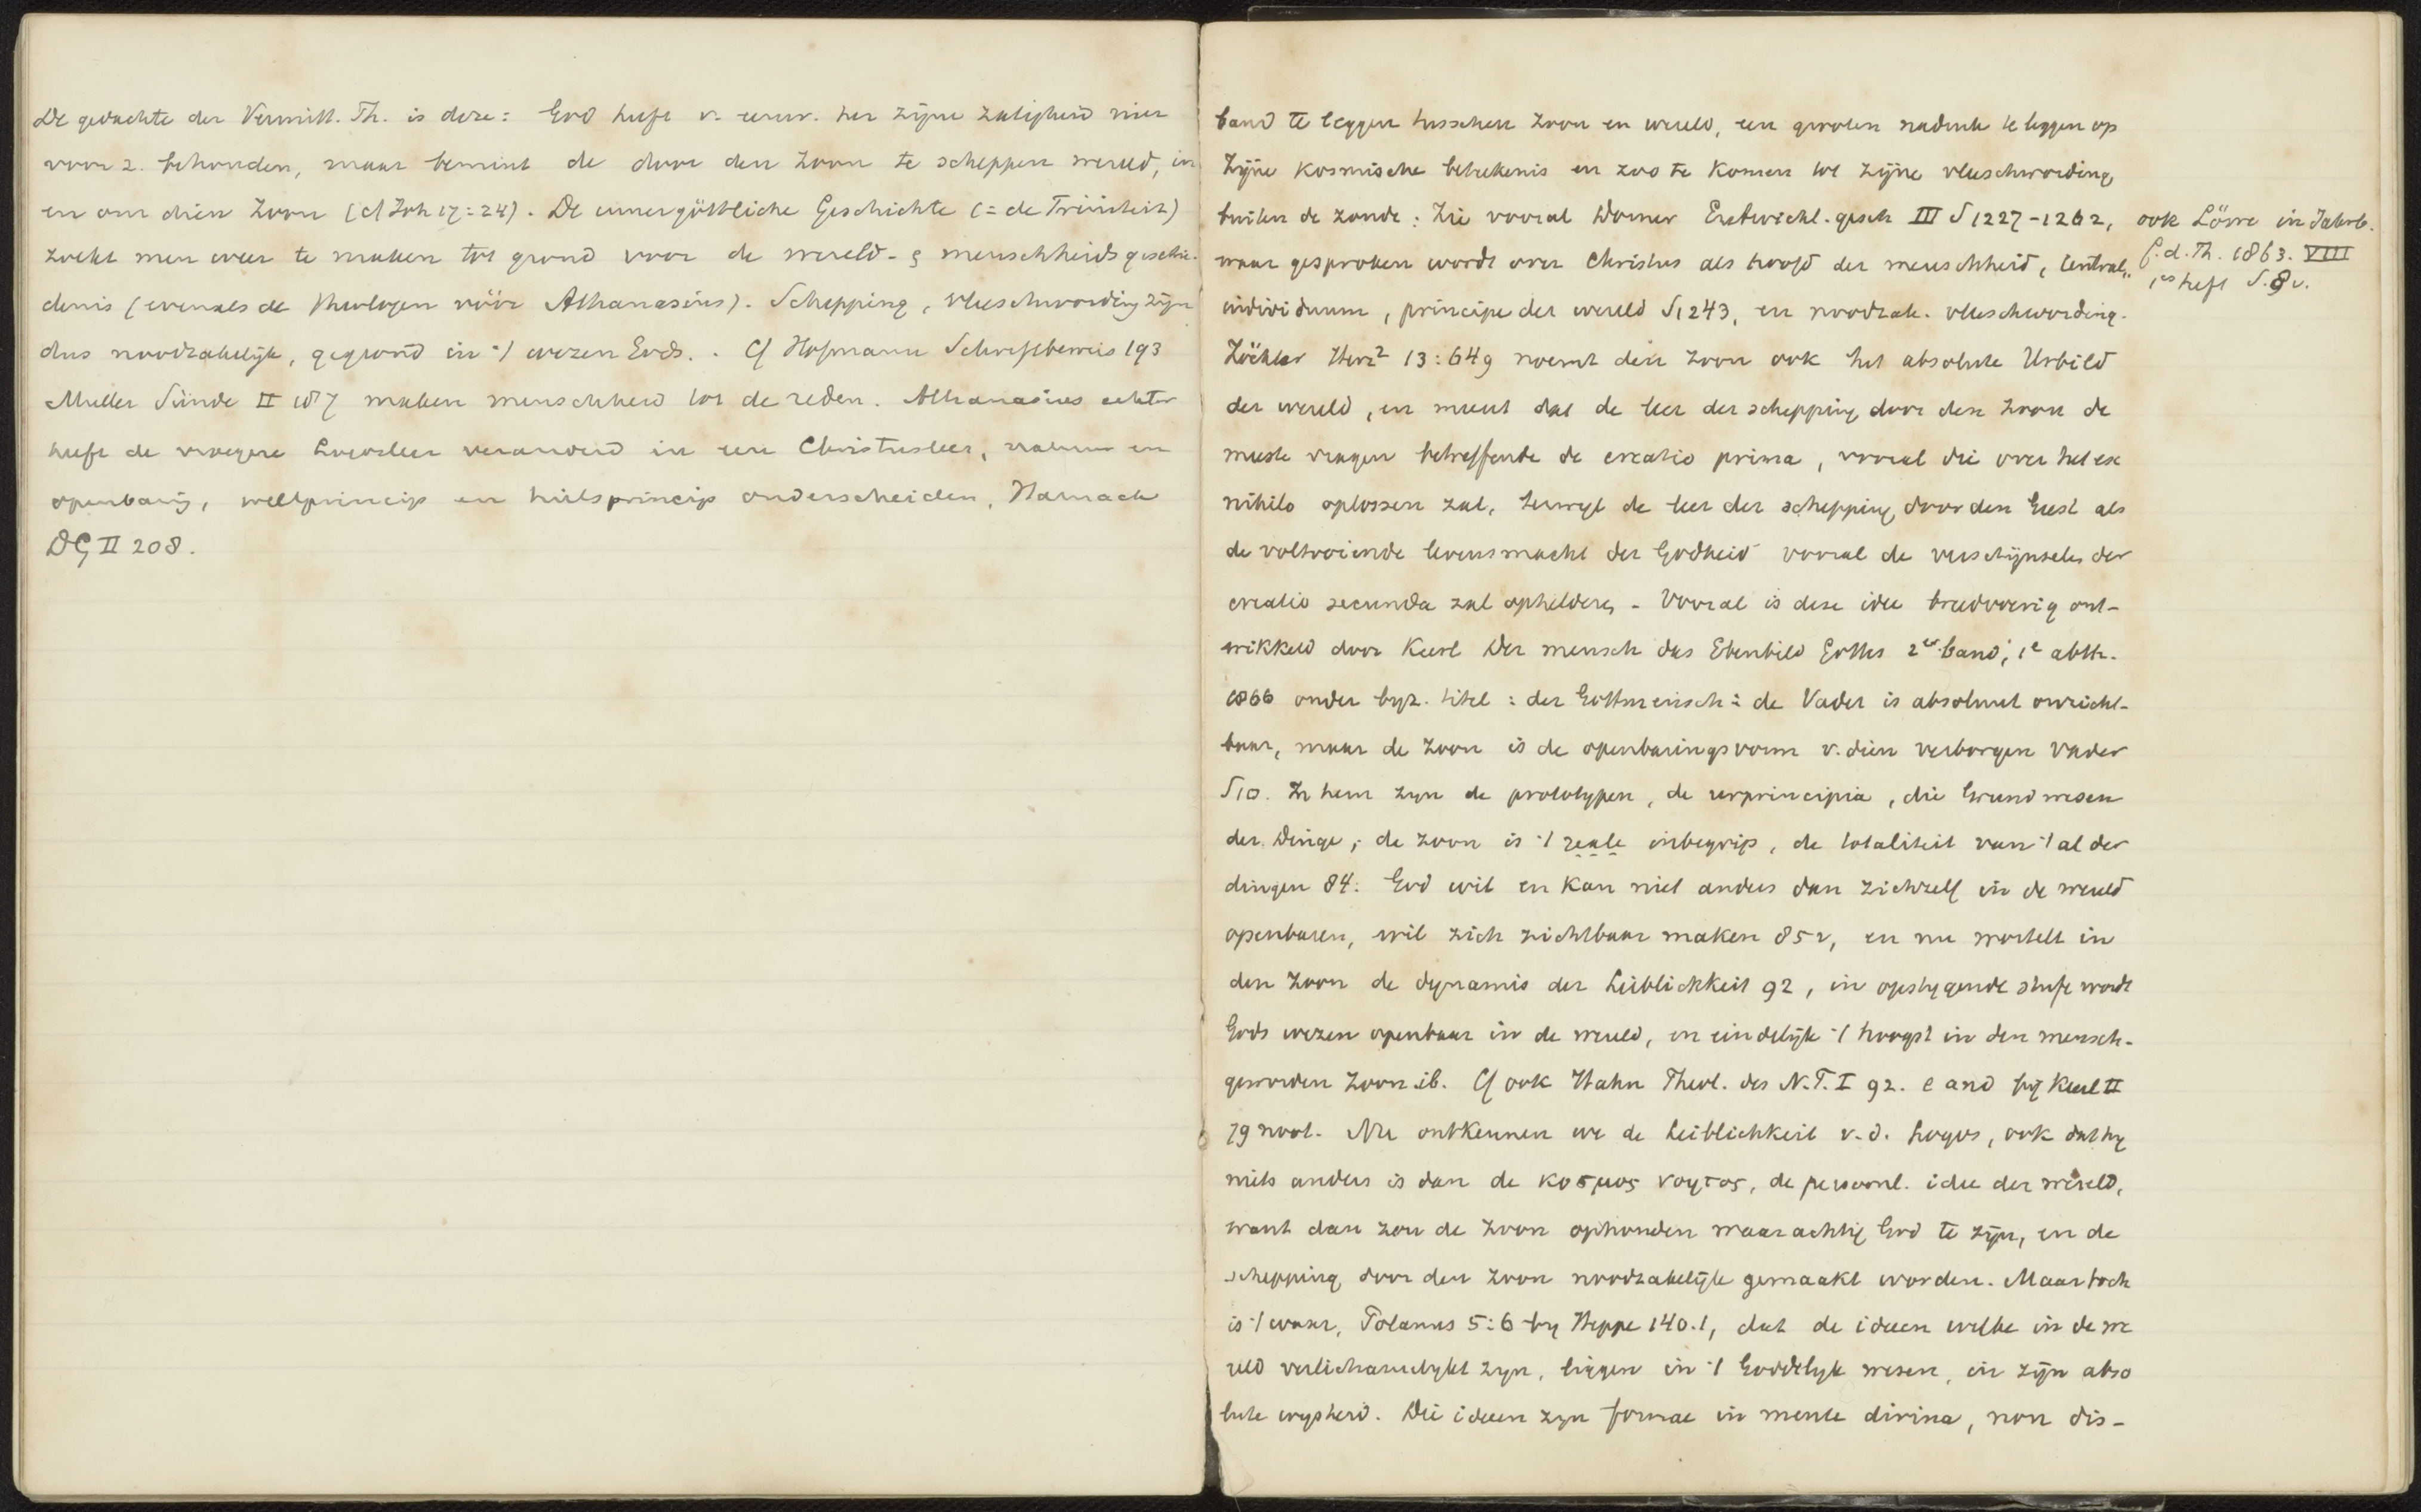 De gedachte der Vermitt. Th. is deze: God heeft v. eeuw. her zijne zaligheid niet
voor z. behouden, maar bemint de door den Zoon te scheppen wereld, in
en om dien Zoon (cf Joh 17:24). De innergöttliche Geschichte (= de Triniteit)
zoekt men weer te maken tot grond voor de wereld- & menschheidsgeschie-
denis (evenals de theologen vóór Athanasius). Schepping, vleeschwording zijn
dus noodzakelijk, gegrond in 't wezen Gods. Cf Hofmann Schriftbeweis 193
Muller Sünde II 187 maken menschheid tot de reden. Athanasius echter
heeft de vroegere Logosleer veranderd in een Christusleer, natuur en
openbaring, weltprincip en heilsprincip onderscheiden, Harnack
DG II 208.
band te leggen tusschen Zoon en wereld, een grooten nadruk te leggen op
Zijne kosmische beteekenis en zoo te komen tot zijne vleeschwording
buiten de zonde: Zie vooral Dorner Entwickl. gesch III S 1227-1262,
waar gesproken wordt over Christus als hoofd der menschheid, Central-
individuum, principe der wereld S 1243, en noodzak. vleeschwording.
ook Löwe in Jahrb.
f. d. Th. 1863. VIII
1es heft S. 8 v.
Zöckler Herz² 13:649 noemt den Zoon ook het absolute Urbild
der wereld, en meent dat de leer der schepping door den Zoon de
meeste vragen betreffende de creatio prima, vooral die over het ex
nihilo oplossen zal, terwyl de leer der schepping door den Geest als
de voltooiende levensmacht der Godheid vooral de verschijnselen der
creatio secunda zal ophelderen. - Vooral is deze idee breedvoerig ont-
wikkeld door Keerl Der mensch das Ebenbild Gottes 2er band, 1e abth.
1866 onder byz. titel: der Gottmensch: de Vader is absoluut onzicht-
baar, maar de Zoon is de openbaringsvorm v. dien verborgen Vader
S 10. In hem zyn de prototypen, de urprincipia, die Grundwesen
der Dinge; de Zoon is 't reale inbegrip, de totaliteit van 't al der
dingen 84: God wil en kan niet anders dan zichzelf in de wereld
openbaren, wil zich zichtbaar maken 85 v, en nu wortelt in
den Zoon de dynamis der Leiblichkeit 92, in opstygende stufe wordt
Gods wezen openbaar in de wereld, en eindelijk 't hoogst in den mensch-
geworden Zoon ib. Cf ook Hahn Theol. des N.T. I 92. e and by Keerl II
79 noot. Nu ontkennen we de Leiblichkeit v. d. Logos, ook dat hy
niets anders is dan de κοσμος νοητος, de persoonl. idee der wereld,
want dan zou de Zoon ophouden waarachtig God te zijn, en de
schepping door den Zoon noodzakelijk gemaakt worden. Maar toch
is 't waar, Polanus 5:6 by Heppe 140.1, dat de ideeen welke in de we
reld verlichamelykt zyn, liggen in 't Goddelyk wesen, in zijn abso
lute wysheid. Die ideeen zyn formae in mente divina, non dis-